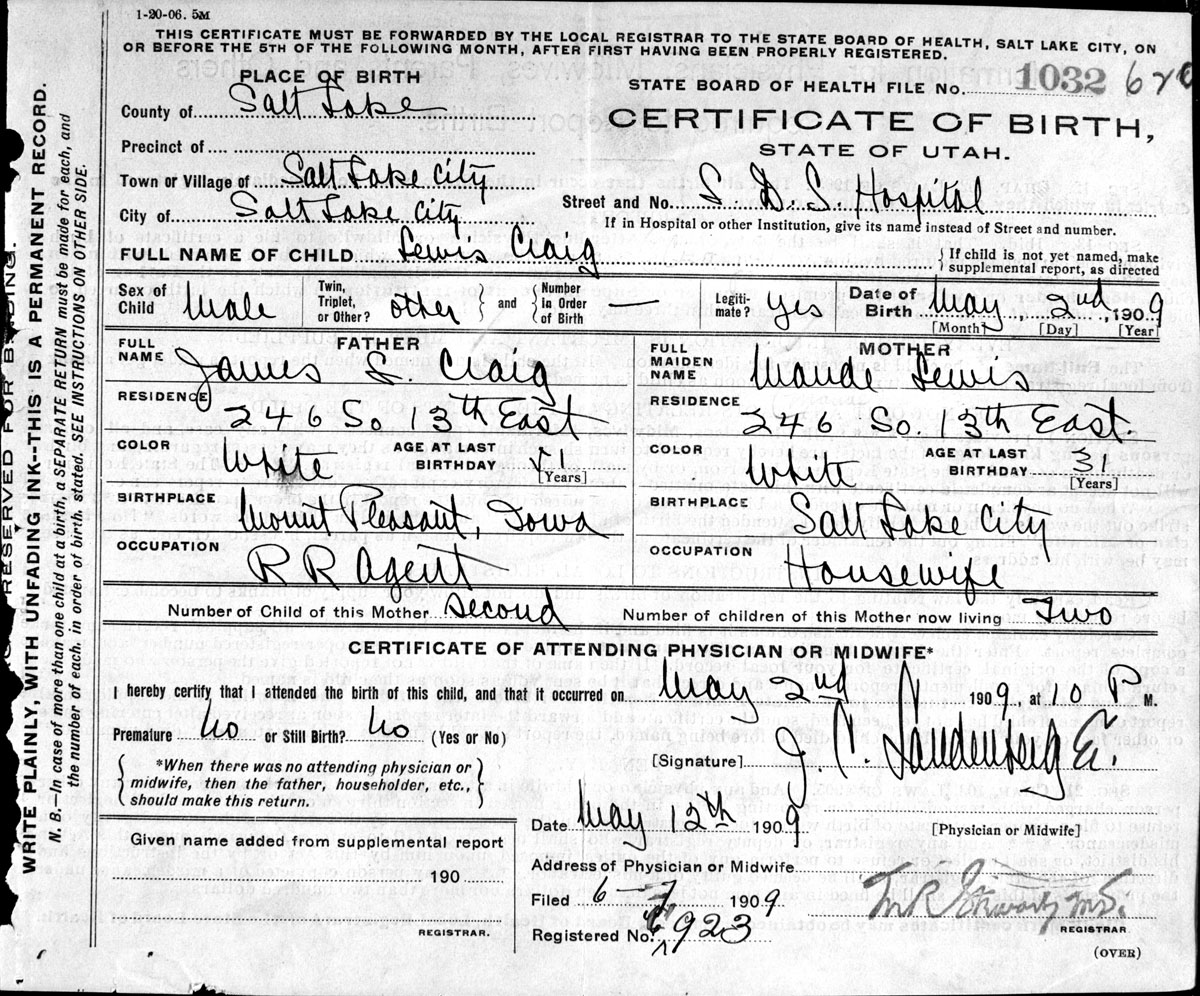 1-20-06. 5M
THIS CERTIFICATE MUST BE FORWARDED BY THE LOCAL REGISTRAR TO THE STATE BOARD OF HEALTH, SALT LAKE CITY, ON
OR BEFORE THE 5TH OF THE FOLLOWING MONTH, AFTER FIRST HAVING BEEN PROPERLY REGISTERED.
PLACE OF BIRTH
STATE BOARD OF HEALTH FILE No. 1032
County of Salt Lake
CERTIFICATE OF BIRTH,
STATE OF UTAH.
Precinct of
Town or Village of Salt Lake City
Street and No. L. D. S. Hospital
City of Salt Lake City
If in Hospital or other Institution, give its name instead of Street and number.
FULL NAME OF CHILD Lewis Craig
If child is not yet named, make
supplemental report, as directed
Sex of Child Male Twin, Triplet, or Other? other and Number In Order of Birth — Legiti- mate? yes Date of Birth May 2nd, 1909
[Month] [Day] [Year]
FATHER
FULL NAME James L. Craig
RESIDENCE 246 So 13th East
COLOR White AGE AT LAST BIRTHDAY
[Years]
BIRTHPLACE Mount Pleasant, Iowa
OCCUPATION R R Agent
MOTHER
FULL MAIDEN NAME Maude Lewis
RESIDENCE 246 So. 13th East.
COLOR White AGE AT LAST BIRTHDAY 31
[Years]
BIRTHPLACE Salt Lake City
OCCUPATION Housewife
Number of Child of this Mother Second Number of children of this Mother now living Two
CERTIFICATE OF ATTENDING PHYSICIAN OR MIDWIFE*
I hereby certify that I attended the birth of this child, and that it occurred on May 2nd 1909, at 10 P M.
Premature No or Still Birth? No (Yes or No)
[Signature] J. C. Landenberg
*When there was no attending physician or
midwife, then the father, householder, etc.,
should make this return.
Date May 12th 1909
[Physician or Midwife]
Given name added from supplemental report
190
REGISTRAR.
Address of Physician or Midwife
Filed 6-7 1909
Registered No. 923
REGISTRAR
(OVER)
AGE RESERVED FOR BINDING.
WRITE PLAINLY, WITH UNFADING INK--THIS IS A PERMANENT RECORD.
N. B. In case of more than one child at a birth, a SEPARATE RETURN must be made for each, and
the number of each, in order of birth, stated. SEE INSTRUCTIONS ON OTHER SIDE.